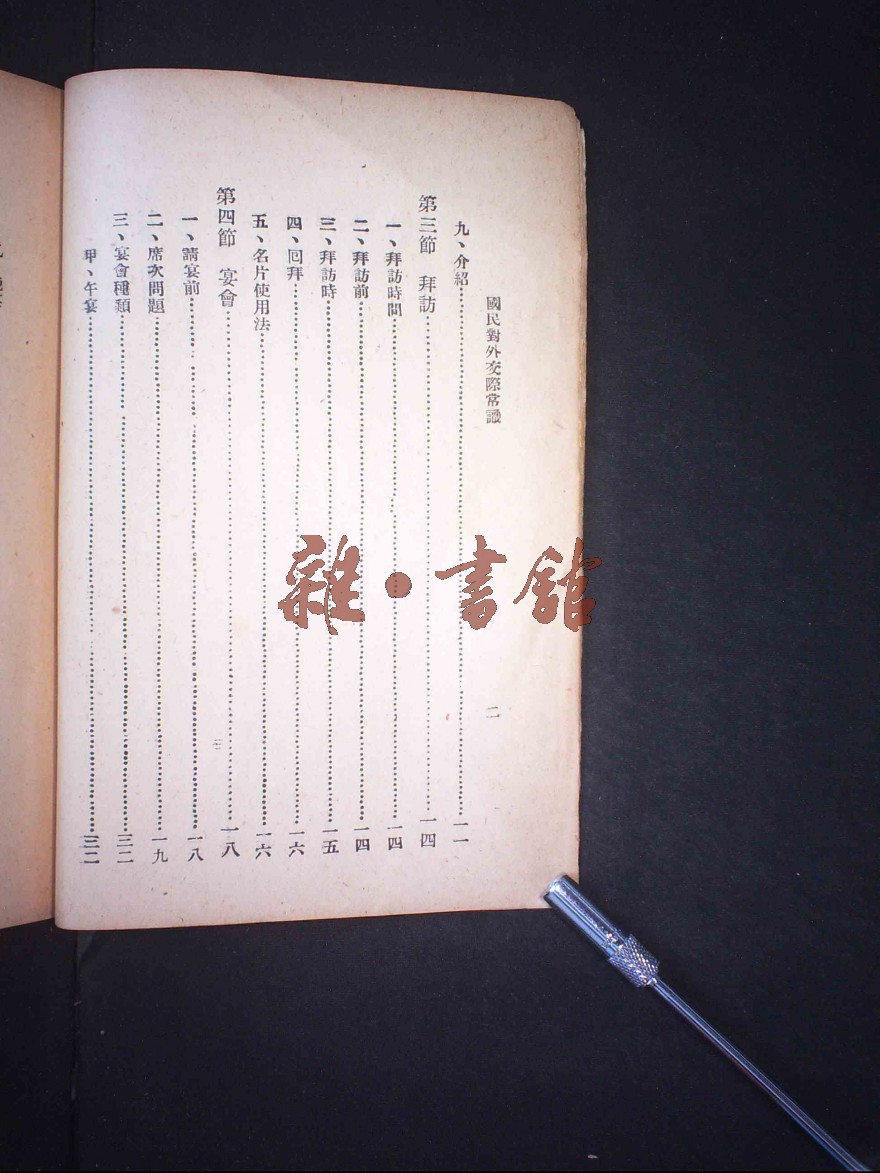 國民對外交際常識
二
九、介紹……一一
第三節 拜訪……一四
一、拜訪時間……一四
二、拜訪前……一四
三、拜訪時……一五
四、回拜……一六
五、名片使用法……一六
第四節 宴會……一八
一、請宴前……一八
二、席次問題……一九
三、宴會種類……三二
甲、午宴……三二
雜•書館